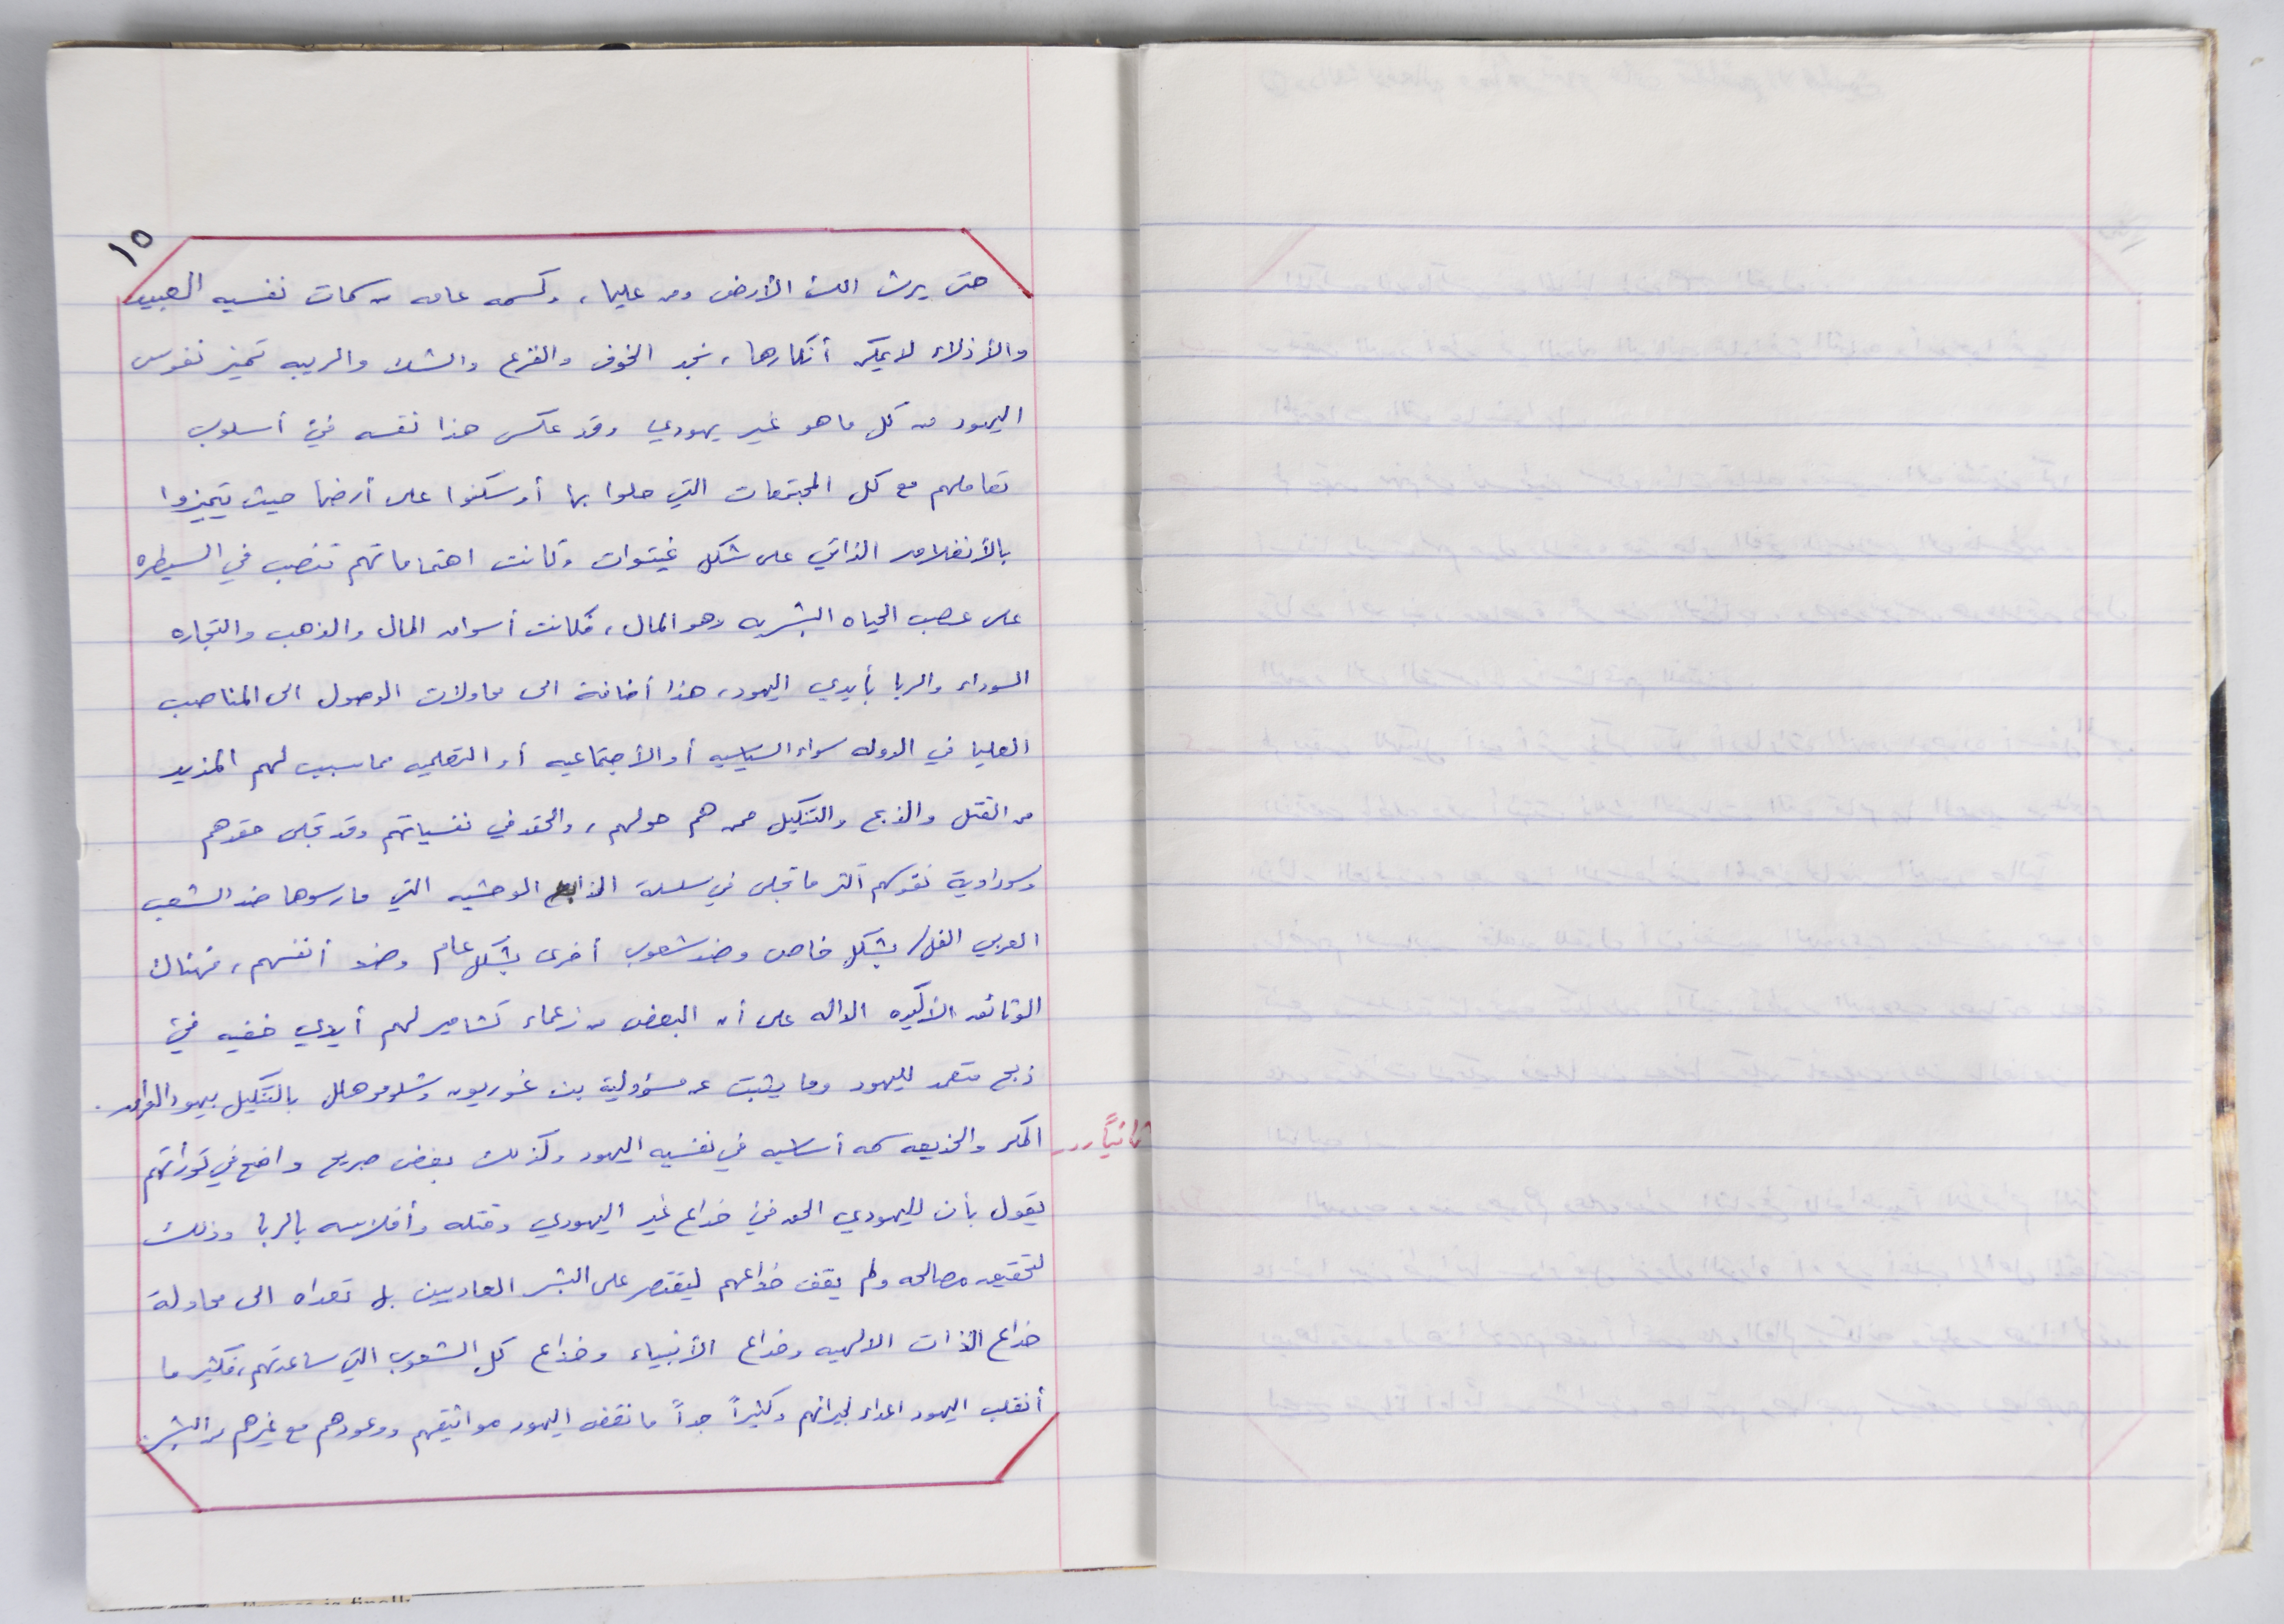 ١٥
حتى يرث الله الأرض ومن عليها، وكسمه عامه من سمات نفسيه العبيد
والأذلاء لا يمكن أنكارها، نجد الخوف والفزع والشك والريبه تميز نفوس
اليهود من كل ما هو غير يهودي وقد عكس هذا نفسه في أسلوب
تعاملهم مع كل المجتمعات التي حلوا بها أو سكنوا على أرضها حيث يتميزوا
بالأنغلاق الذاتي على شكل غيتوات وكانت اهتماماتهم تنصب في السيطره
على عصب الحياه البشريه وهو المال، فكانت أسواق المال والذهب والتجاره
السوداء والربا بأيدي اليهود، هذا أضافة الى محاولات الوصول الى المناصب
العليا في الدوله سواء السياسيه أو الأجتماعيه أو التعلميه مما سبب لهم المزيد
من القتل والذبح والتنكيل ممن هم حولهم، والحقد في نفسياتهم وقد تجلى حقدهم
وسوداوية نفوسهم أكثر ما تجلى في سلسلة المذابح الوحشيه التي مارسوها ضد الشعب
العربي الفل/ بشكل خاص وضد شعوب أخرى بشكل عام وضد أنفسهم، فهناك
الوثائق الأكيده الداله على أن البعض من زعماء لهم أيدي خفيه في
ذبح متعمد لليهود وما يثبت عن مسؤولية بن غوريون وشلومو هلل بالتنكيل بيهود العراق.
ثانياً.. المكر والخديعه سمه أساسيه في نفسيه اليهود وكذلك بغض صريح واضح في توراتهم
يقول بأن لليهودي الحق في خداع غير اليهودي وقتله وأفلاسه بالربا وذلك
لتحقيق مصالحه ولم يقف خداعهم ليقتصر على البشر العاديين بل تعداه الى محاولة
خداع الذات الالهيه وخداع الأنبياء وخداع كل الشعوب التي ساعدتهم، فكثير ما
أنقلب اليهود اعداء لجيرانهم وكثيراً جداً ما نقض اليهود مواثيقهم ووعودهم مع غيرهم من البشر.